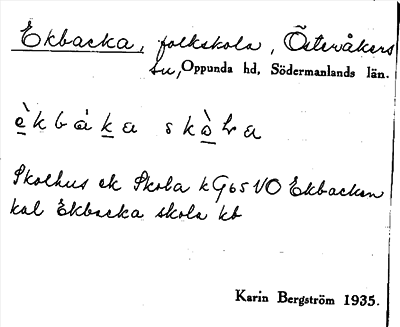 Ekbacka, folkskola, Österåkers
sn, Oppunda hd, Södermanlands län.
è̲k b á k̲a s k ò̲ l a
Skolhus ek Skola kG65 VO Ekbacken
kal Ekbacka skola kb
Karin Bergström 1935.